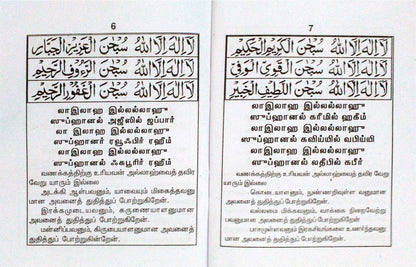 6
لَا إِلٰهَ إِلَّا اللهُ سُبْحٰنَ الْعَزِيْزِ الْجَبَّارِ
لَا إِلٰهَ إِلَّا اللهُ سُبْحٰنَ الرَّءُوْفِ الرَّحِيْمِ
لَا إِلٰهَ إِلَّا اللهُ سُبْحٰنَ الْغَفُوْرِ الرَّحِيْمِ
லாஇலாஹ இல்லல்லாஹு
ஸுப்ஹானல் அஜீஸில் ஜப்பார்
லா இலாஹ இல்லல்லாஹு
ஸுப்ஹானர் ரவூஃபிர் ரஹீம்
லா இலாஹ இல்லல்லாஹு
ஸுப்ஹானல் ஃகபூரிர் ரஹீம்
வணக்கத்திற்கு உரியவன் அல்லாஹ்வைத் தவிர
வேறு யாரும் இல்லை
அடக்கி ஆள்பவனும், யாவையும் மிகைத்தவனு
மான அவனைத் துதித்துப் போற்றுகின்றேன்.
இரக்கமுடையவனும், கருணையாளனுமான
அவனைத் துதித்துப் போற்றுகிறேன்.
மன்னிப்பவனும், கிருபையாளனுமான அவனைத்
துதித்துப் போற்றுகின்றேன்.
7
لَا إِلٰهَ إِلَّا اللهُ سُبْحٰنَ الْكَرِيْمِ الْحَكِيْمِ
لَا إِلٰهَ إِلَّا اللهُ سُبْحٰنَ الْقَوِيِّ الْوَفِيِّ
لَا إِلٰهَ إِلَّا اللهُ سُبْحٰنَ اللَّطِيْفِ الْخَبِيْرِ
லாஇலாஹ இல்லல்லாஹு
ஸுப்ஹானல் கரீமில் ஹகீம்
லாஇலாஹ இல்லல்லாஹு
ஸுப்ஹானல் கவிய்யில் வபிய்யி
லாஇலாஹ இல்லல்லாஹு
ஸுப்ஹானல் லதீபில் கபீர்
வணக்கத்திற்கு உரியவன் அல்லாஹ்வைத் தவிர
வேறு யாரும் இல்லை
கொடையாளனும், நுண்ணறிவுள்ள வனுமான
அவனைத் துதித்துப் போற்றுகின்றேன்.
வல்லமை மிக்கவனும், வாக்கை நிறைவேற்று
பவனுமான அவனைத் துதித்துப் போற்றுகிறேன்
பாசமுள்ளவனும் இரகசியங்களை உணர்ந்தவனு
மான அவனைத் துதித்துப் போற்றுகின்றேன்.